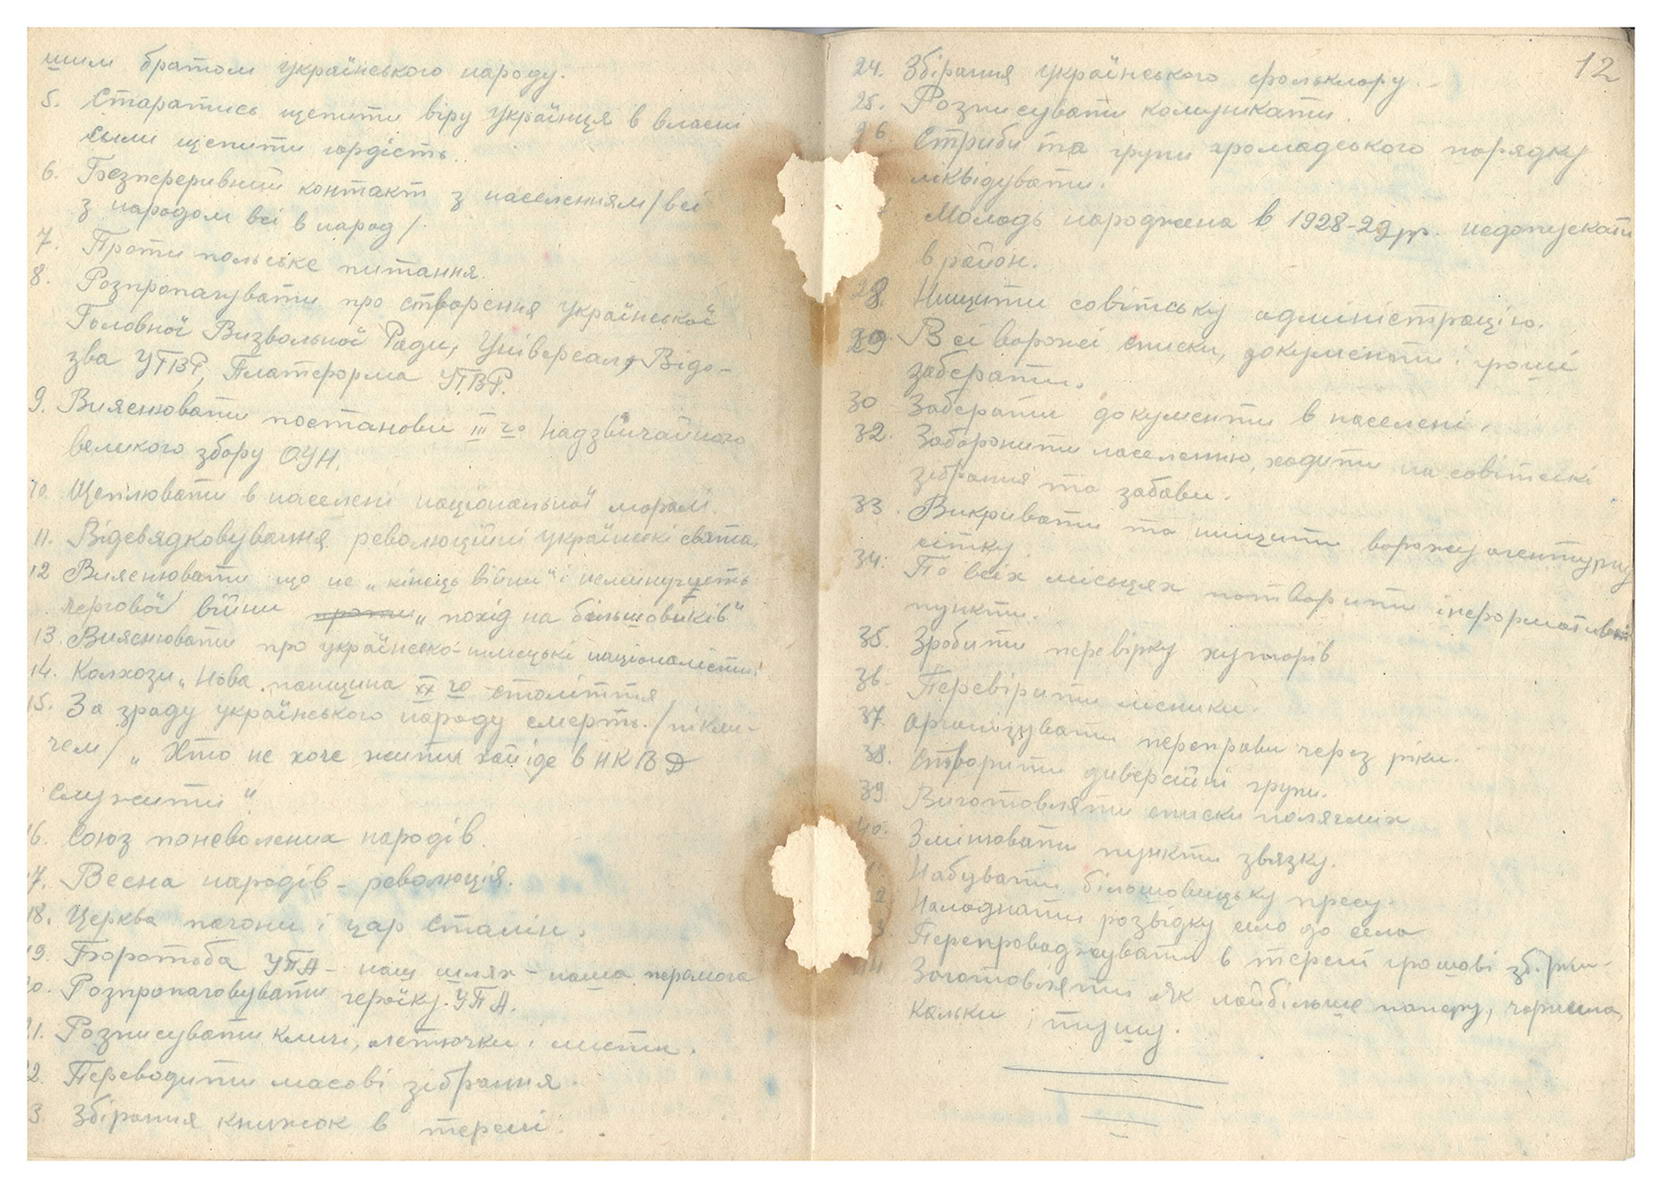 шим братом українського народу.
5. Старатись щепити віру українця в власні
сили щепити гордість.
6. Безперервний контакт з населенням / всі
з народом всі в народ /.
7. Проти польське питання.
8. Розпропагувати про створення української
Головної Визвольної Ради, Універсал, Відо-
зва УГВР, Платформа УГВР.
9. Вияснювати постанови III го Надзвичайного
великого збору ОУН.
10. Щеплювати в населені національної моралі.
11. Відсвядковування революційні українські свята.
12 Вияснювати що це „кінець війни" і неминучість
чергової війни проти „похід на большовиків"
13. Вияснювати про українсько-німецькі націоналісти
14. Колхози „Нова панщина XX го століття
15. За зраду українського народу смерть. / під кли-
чем / „Хто не хоче жити хай іде в НКВД
служити"
16. Союз поневолених народів.
17. Весна народів - революція.
18. Церква пагони і цар Сталін.
19. Боротьба УПА - наш шлях - наша перемога
20. Розпропаговувати героїку УПА.
21. Розписувати кличі, летючки і листи.
22. Переводити масові зібрання.
3. Збірання книжок в терені.
12
24. Збірання українського фольклору.
25. Розписувати комунікати.
26 Стриби та групи громадського порядку
ліквідувати.
Молодь народжена в 1928-29 рр. недопускати
в район.
28. Нищити совітську адміністрацію.
29 Всі ворожі списки, документи і гроші
заберати.
30 Заберати документи в населені.
32. Заборонити населенню, ходити на совітські
зібрання та забави.
33. Викривати та нищити ворожу агентурну
сітку.
34. По всіх місцях потворити інформативні
пункти.
35. Зробити перевірку хуторів
36. Перевірити лісники.
37. Організувати переправи через ріки.
38. Створити диверсійні групи.
39. Виготовляти списки поляглих
40. Змінювати пункти звязку.
Набувати большовицьку пресу.
2 Наладнати розвідку село до села
3. Перепроваджувати в терені грошові зб.
44 Заготовляти як найбільше паперу, чорнила,
кальки і тушу.